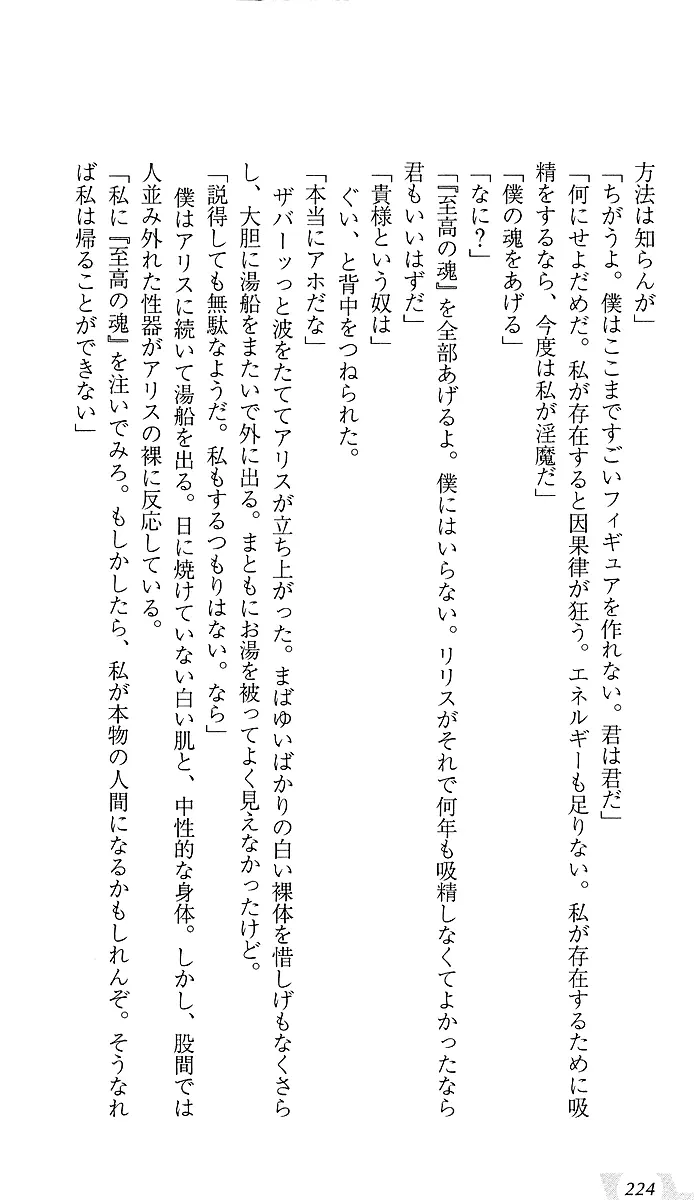 方法は知らんが」
「ちがうよ。僕はここまですごいフィギュアを作れない。君は君だ」
「何にせよだめだ。私が存在すると因果律が狂う。エネルギーも足りない。私が存在するために吸
精をするなら、今度は私が淫魔だ」
「僕の魂をあげる」
「なに？」
「『至高の魂』を全部あげるよ。僕にはいらない。リリスがそれで何年も吸精しなくてよかったなら
君もいいはずだ」
「貴様という奴は」
ぐい、と背中をつねられた。
「本当にアホだな」
ザバーッっと波をたててアリスが立ち上がった。まばゆいばかりの白い裸体を惜しげもなくさら
し、大胆に湯船をまたいで外に出る。まともにお湯を被ってよく見えなかったけど。
「説得しても無駄なようだ。私もするつもりはない。なら」
僕はアリスに続いて湯船を出る。日に焼けていない白い肌と、中性的な身体。しかし、股間では
人並み外れた性器がアリスの裸に反応している。
「私に『至高の魂』を注いでみろ。もしかしたら、私が本物の人間になるかもしれんぞ。そうなれ
ば私は帰ることができない」
224